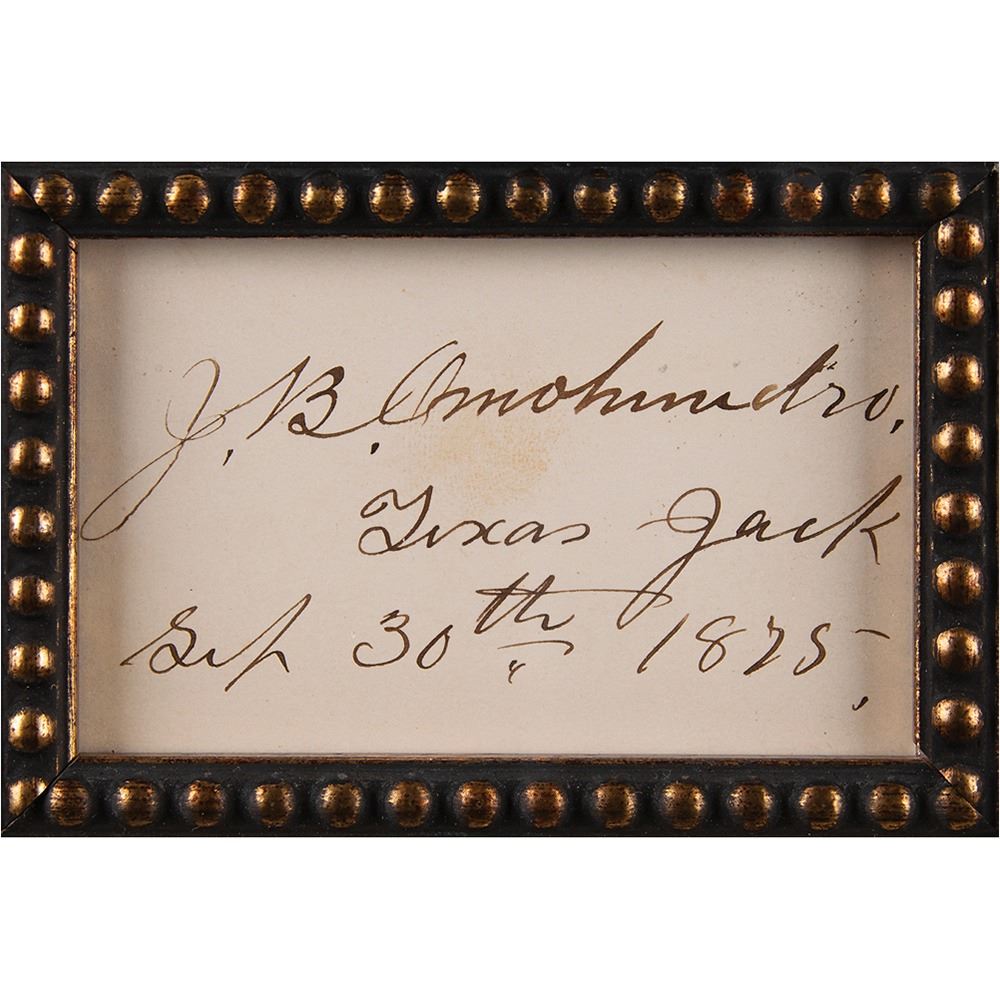 J. B. Omohundro,
Texas Jack
Sep 30th 1875,